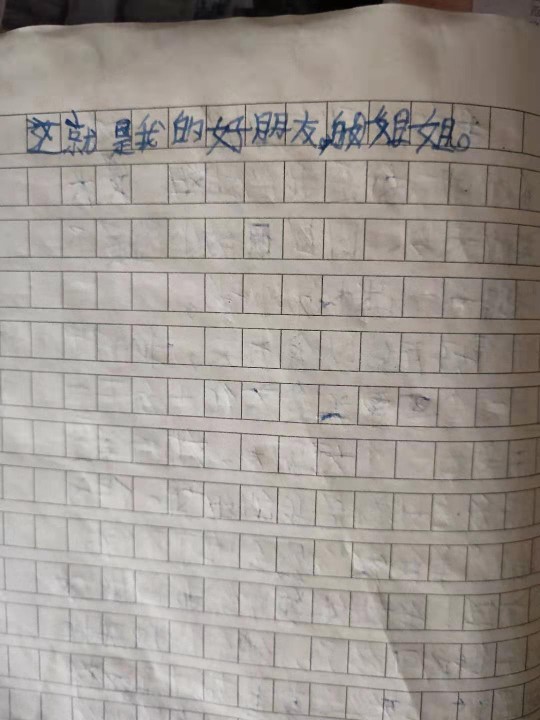 这就是我的好朋友,的姐姐。